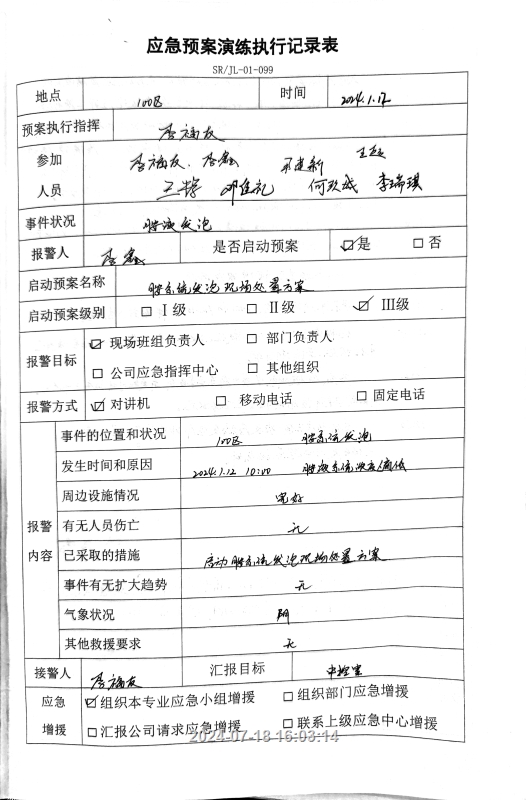 应急预案演练执行记录表
SR/JL-01-099
地点 100区 时间 2024.1.12
预案执行指挥 李福友
参加人员 李福友、李鑫 王超
何欢成 李瑞琪
事件状况 胺液发泡
报警人 李鑫 是否启动预案 ☑是 □否
启动预案名称 胺系统发泡现场处置方案
启动预案级别 □ Ⅰ级 □ Ⅱ级 ☑ Ⅲ级
报警目标 ☑ 现场班组负责人 □ 部门负责人
□ 公司应急指挥中心 □ 其他组织
报警方式 ☑ 对讲机 □ 移动电话 □ 固定电话
报警内容
事件的位置和状况 100区 胺系统发泡
发生时间和原因 2024.1.12 10:00 胺液系统
周边设施情况 完好
有无人员伤亡 无
已采取的措施 启动胺系统发泡现场处置方案
事件有无扩大趋势 无
气象状况 阴
其他救援要求 无
接警人 李福友 汇报目标 中控室
应急增援 ☑组织本专业应急小组增援 □组织部门应急增援
□汇报公司请求应急增援 □联系上级应急中心增援
2024-07-18 16:03:14